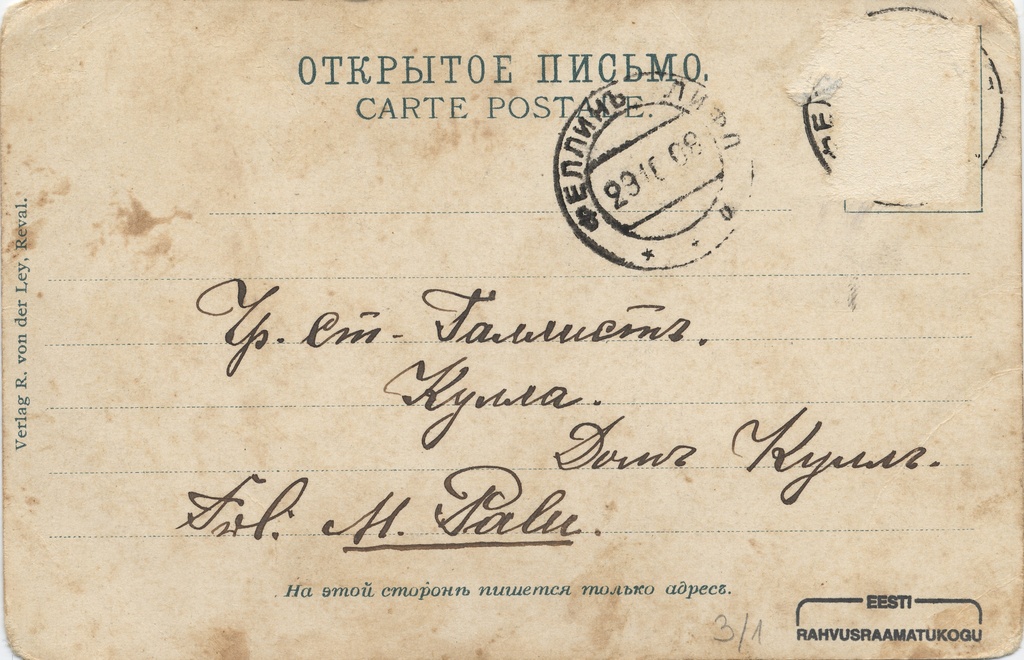 ОТКРЫТОЕ ПИСЬМО.
CARTE POSTALE.
ФЕЛЛИНЪ ЛИФЛ
29 10 08
ФЕЛ
Verlag R. von der Ley, Reval.
Чр. ст. Галлистъ.
Кулла.
Домъ Куллъ.
Frl. M. Palu.
На этой сторонѣ пишется только адресъ.
3/1
EESTI
RAHVUSRAAMATUKOGU